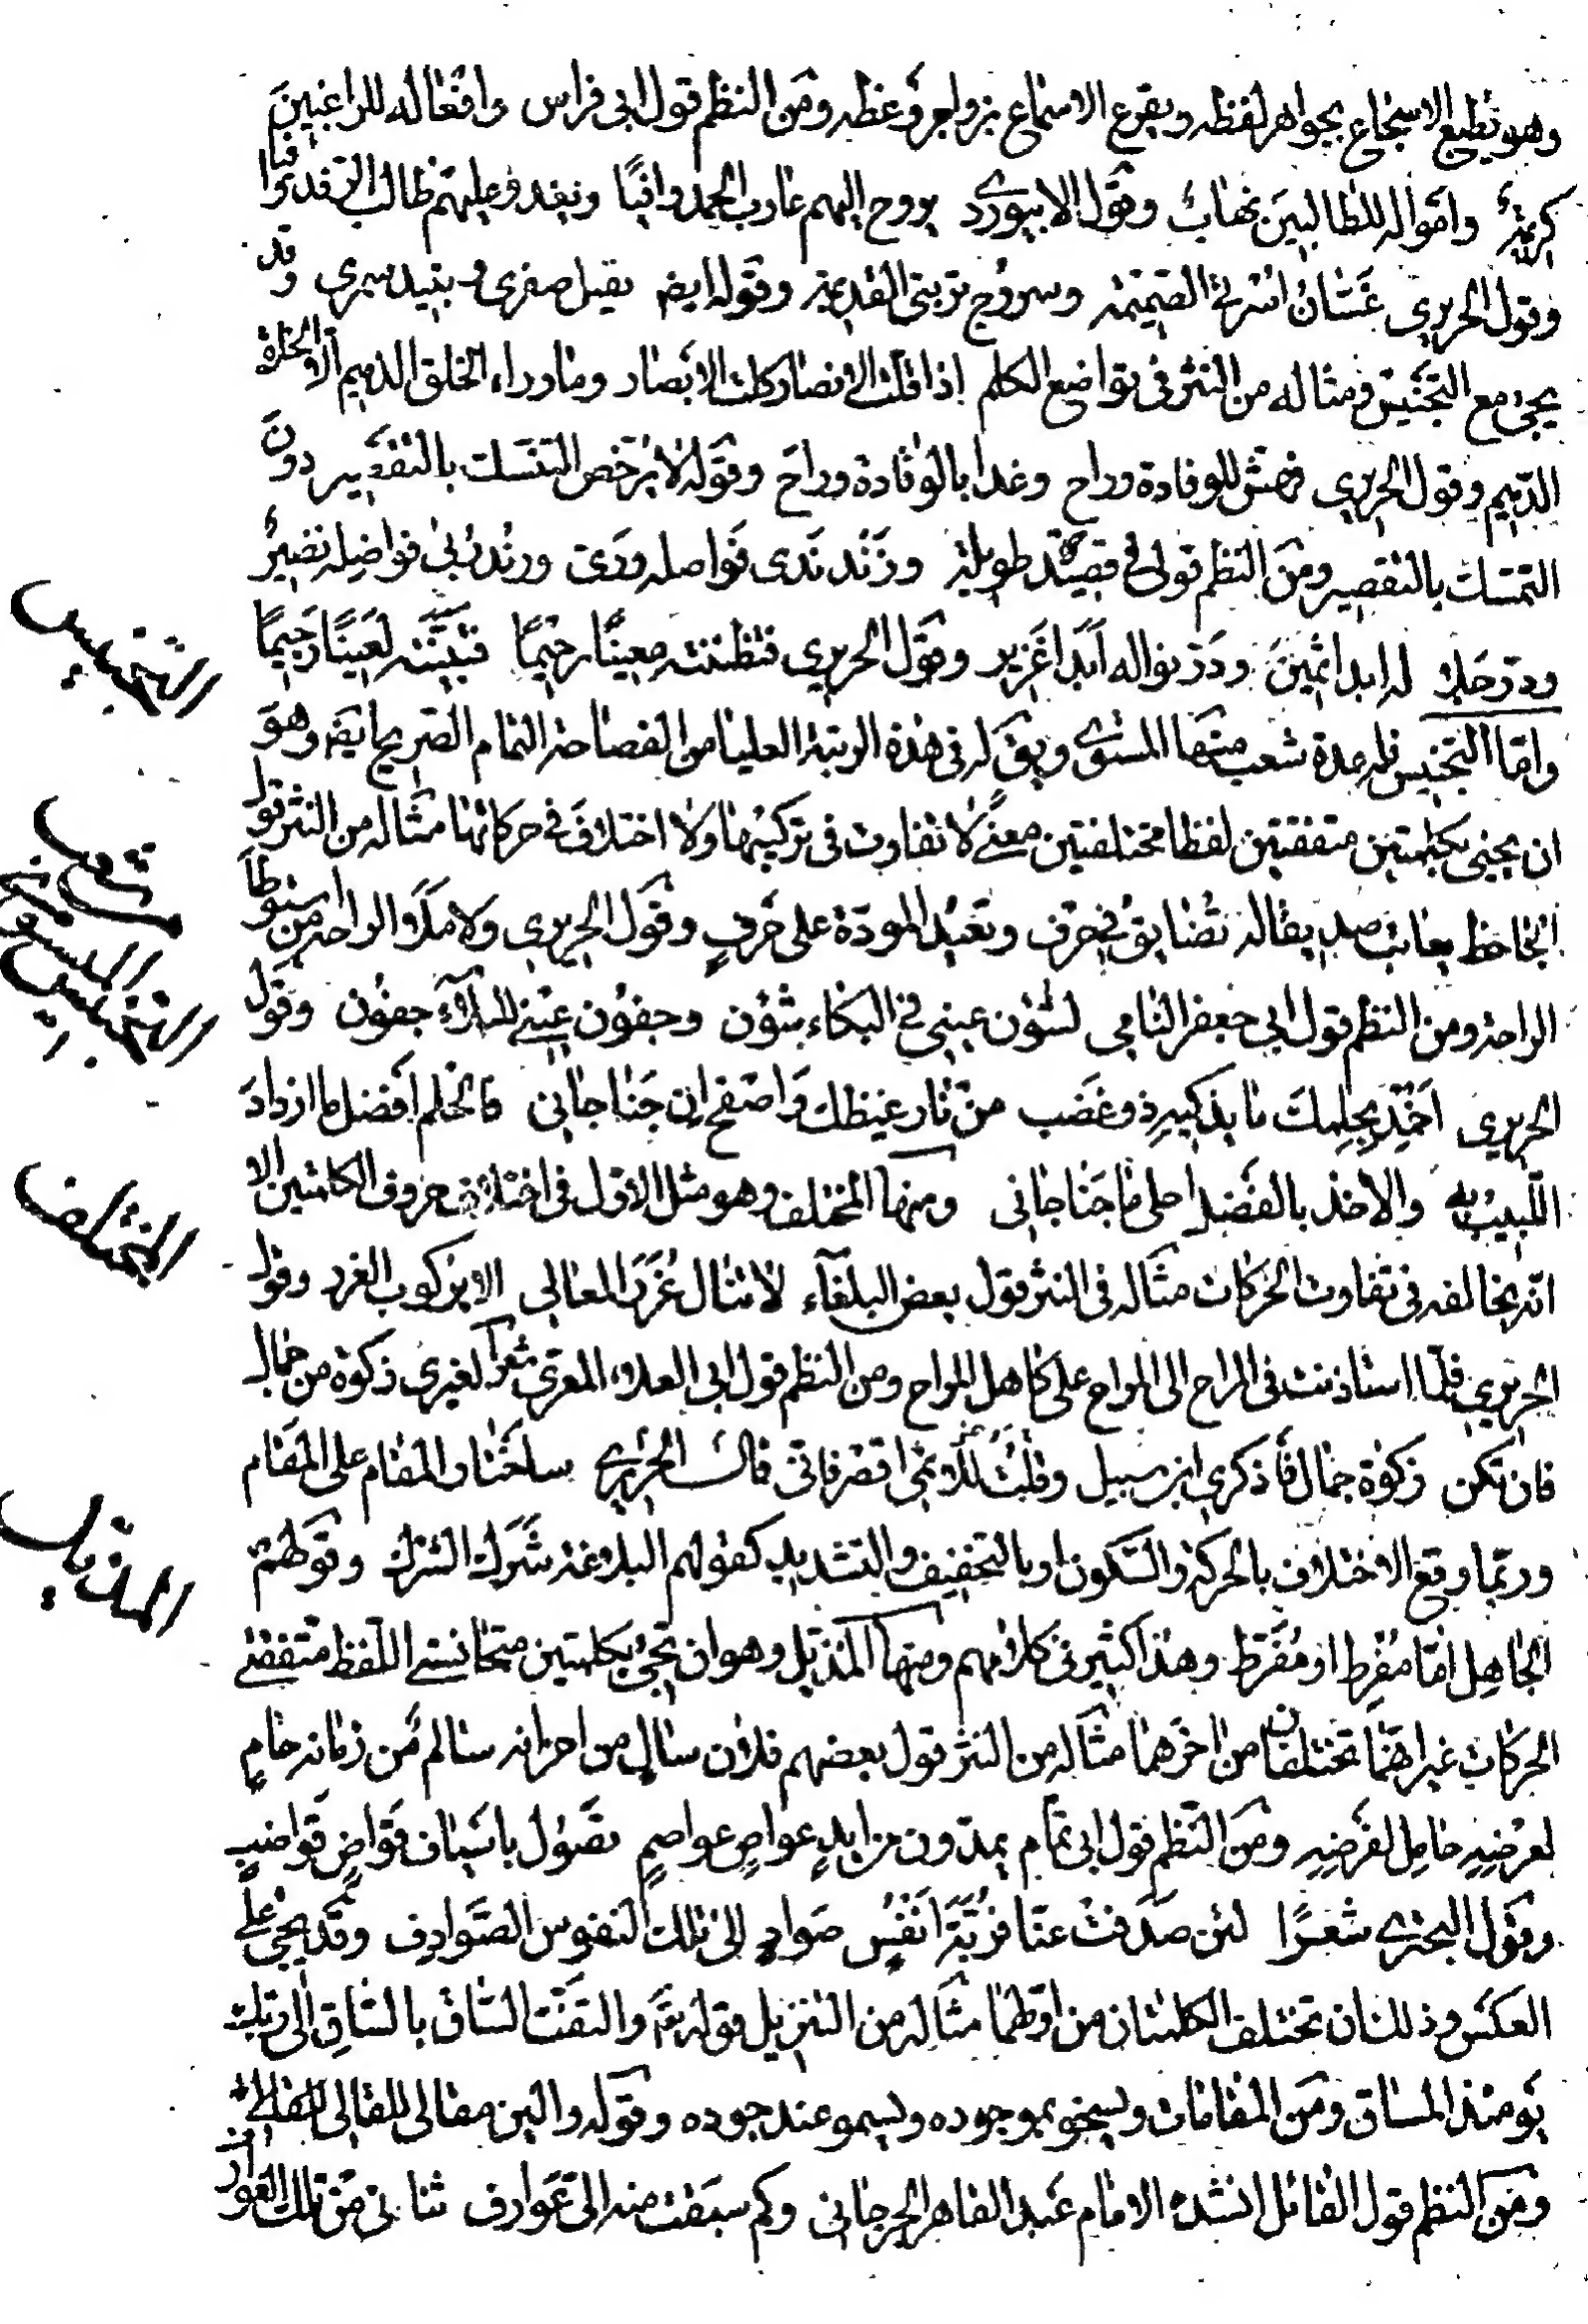 وهو يطبع الاسجاع بجواهر لفظه ويقرع الاسماع بزواجر وعظه ومن النظم قول ابى فراس وافعاله للراغبين
كريمة وامواله للطالبين نهاب وقول الابيوردى يروح اليهم عازب الحمد وافيا ويغدو عليهم طالب الرفد عافيا
وقول الحريرى غسّان اسرتى الصميمة وسروج تربتى القديمة وقوله ايضا وقد
يجئ مع التجنيس ومثاله من النثر فى تواضيع الكلم اذا قلت الانصار كلت الابصار وما وراء الخلق الدميم الا الخلق
الذميم وقول الحريرى فهش للوفادة وراح وغدا بالوفادة وراح وقوله لا يرخص التنسك بالتقصير دون
التمسك بالتقصير ومن النظم قولى فى قصيدة طويلة وزند ندى فواضله ورىّ ورند ربى فواضله نضير
ودرّ جلاله ابدا ثمين ودرّ نواله ابدا غزير وقول الحريرى فظننته معينًا رحيمًا فتبينته لعينًا رجيمًا
وامّا التجنيس فله عدة شعب منها المستوى ويقال له فى هذه الرتبة العليا من الفصاحة التمام الصريح ايضا وهو
ان يجيئ بكلمتين متفقتين لفظا مختلفتين معنى لا تفاوت فى تركيبهما ولا اختلاف فى حركاتهما مثاله من النثر قول
الجاحظ يعاتب صديقا له تضايق فى حرف وتعبد المودّة على حرف وقول الحريرى ولا ملأ الراحة من استوطأ
الراحة ومن النظم قول ابى جعفر النامى لشؤن عينى فى البكاء شؤن وجفون عينى للبلاء جفون وقول
الحريرى اخمد بحلمك ما يذكيه ذو غضب من نار غيظك واصفح ان جنا جانى فالحلم افضل ما ازداد
اللبيب به والاخذ بالفضل احلى ما جنا جانى ومنها المختلف وهو مثل الاول فى اختلاف حروف الكلمتين الا
انّه يخالفه فى تفاوت الحركات مثاله فى النثر قول بعض البلغاء لا تنال غرر المعالى الا بركوب الغرر وقول
الحريرى فلما استاذنت فى المراح الى المراح على كاهل المراح ومن النظم قول ابى العلاء المعرى شعرا لغيرى زكوة من جمال
فان تكن زكوة جمال فاذكرى ابن سبيل وقلت للائمى اقصر فانى قال الحريرى ساختار المقام على المقام
وربّما وقع الاختلاف بالحركة والسكون او بالتخفيف والتشديد كقولهم البدعة شرك الشرك وقولهم
الجاهل امّا مفرط او مفرّط وهذا كثير فى كلامهم ومنها المذيّل وهو ان تجئ بكلمتين متجانستى اللفظ متفقتى
الحركات غير انهما تختلفان من اخرهما مثاله من النثر قول بعضهم فلان سال من احزانه سالم من زمانه حام
لعرضه حامل لفرضه ومن النظم قول ابى تمام يمدّون من ايد عواص عواصم تصول باسياف قواض قواضب
وقول البحترى شعرًا لئن صدفت عنّا فربّة انفس صواد الى تلك النفوس الصوادف وقد يجئ على
العكس وذلك ان تختلف الكلمتان من اولهما مثاله من التنزيل قوله تعالى والتفّت الساق بالساق الى ربك
يومئذ المساق ومن المقامات ويسخو بموجوده ويسمو عند جوده وقوله والين مقالى للقالى
ومن النظم قول القائل انشده الامام عبد القاهر الجرجانى وكم سبقت منه الىّ عوارف ثنائى من تلك العوارف
التجنيس
شعب التجنيس المستوى
المختلف
المذيل